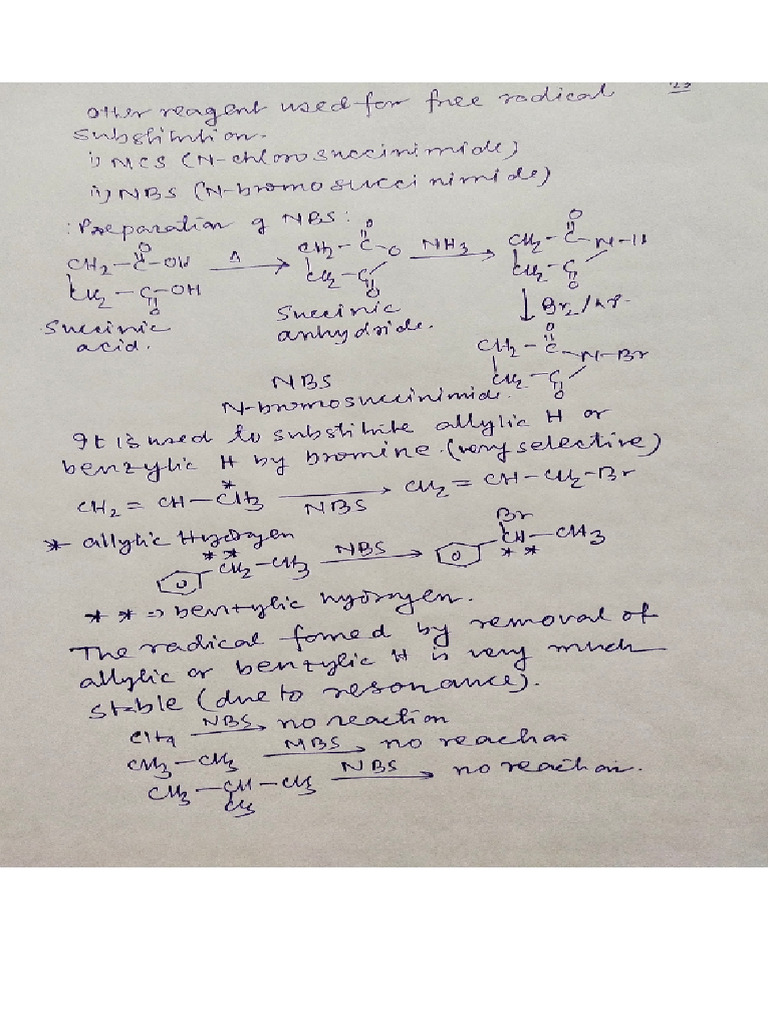 23
Other reagent used for free radical
substitution.
i) NCS (N-chlorosuccinimide)
ii) NBS (N-bromosuccinimide)
: Preparation of NBS :
CH2-C-OH Δ CH2-C O NH3 CH2-C N-H
O O O
CH2-C-OH CH2-C CH2-C
O O O
Succinic acid. Succinic anhydride. Br2/
CH2-C N-Br
O
CH2-C
O
NBS
N-bromosuccinimide.
It is used to substitute allylic H or
benzylic H by bromine. (very selective)
CH2 = CH-CH3 * NBS CH2 = CH-CH2-Br
* allylic Hydrogen
** CH2-CH3 NBS Br CH-CH3 **
** => benzylic hydrogen.
The radical fomed by removal of
allylic or benzylic H is very much
stable (due to resonance).
CH4 NBS no reaction
CH3-CH3 NBS no reaction
CH3-CH-CH3 NBS no reaction.
CH3